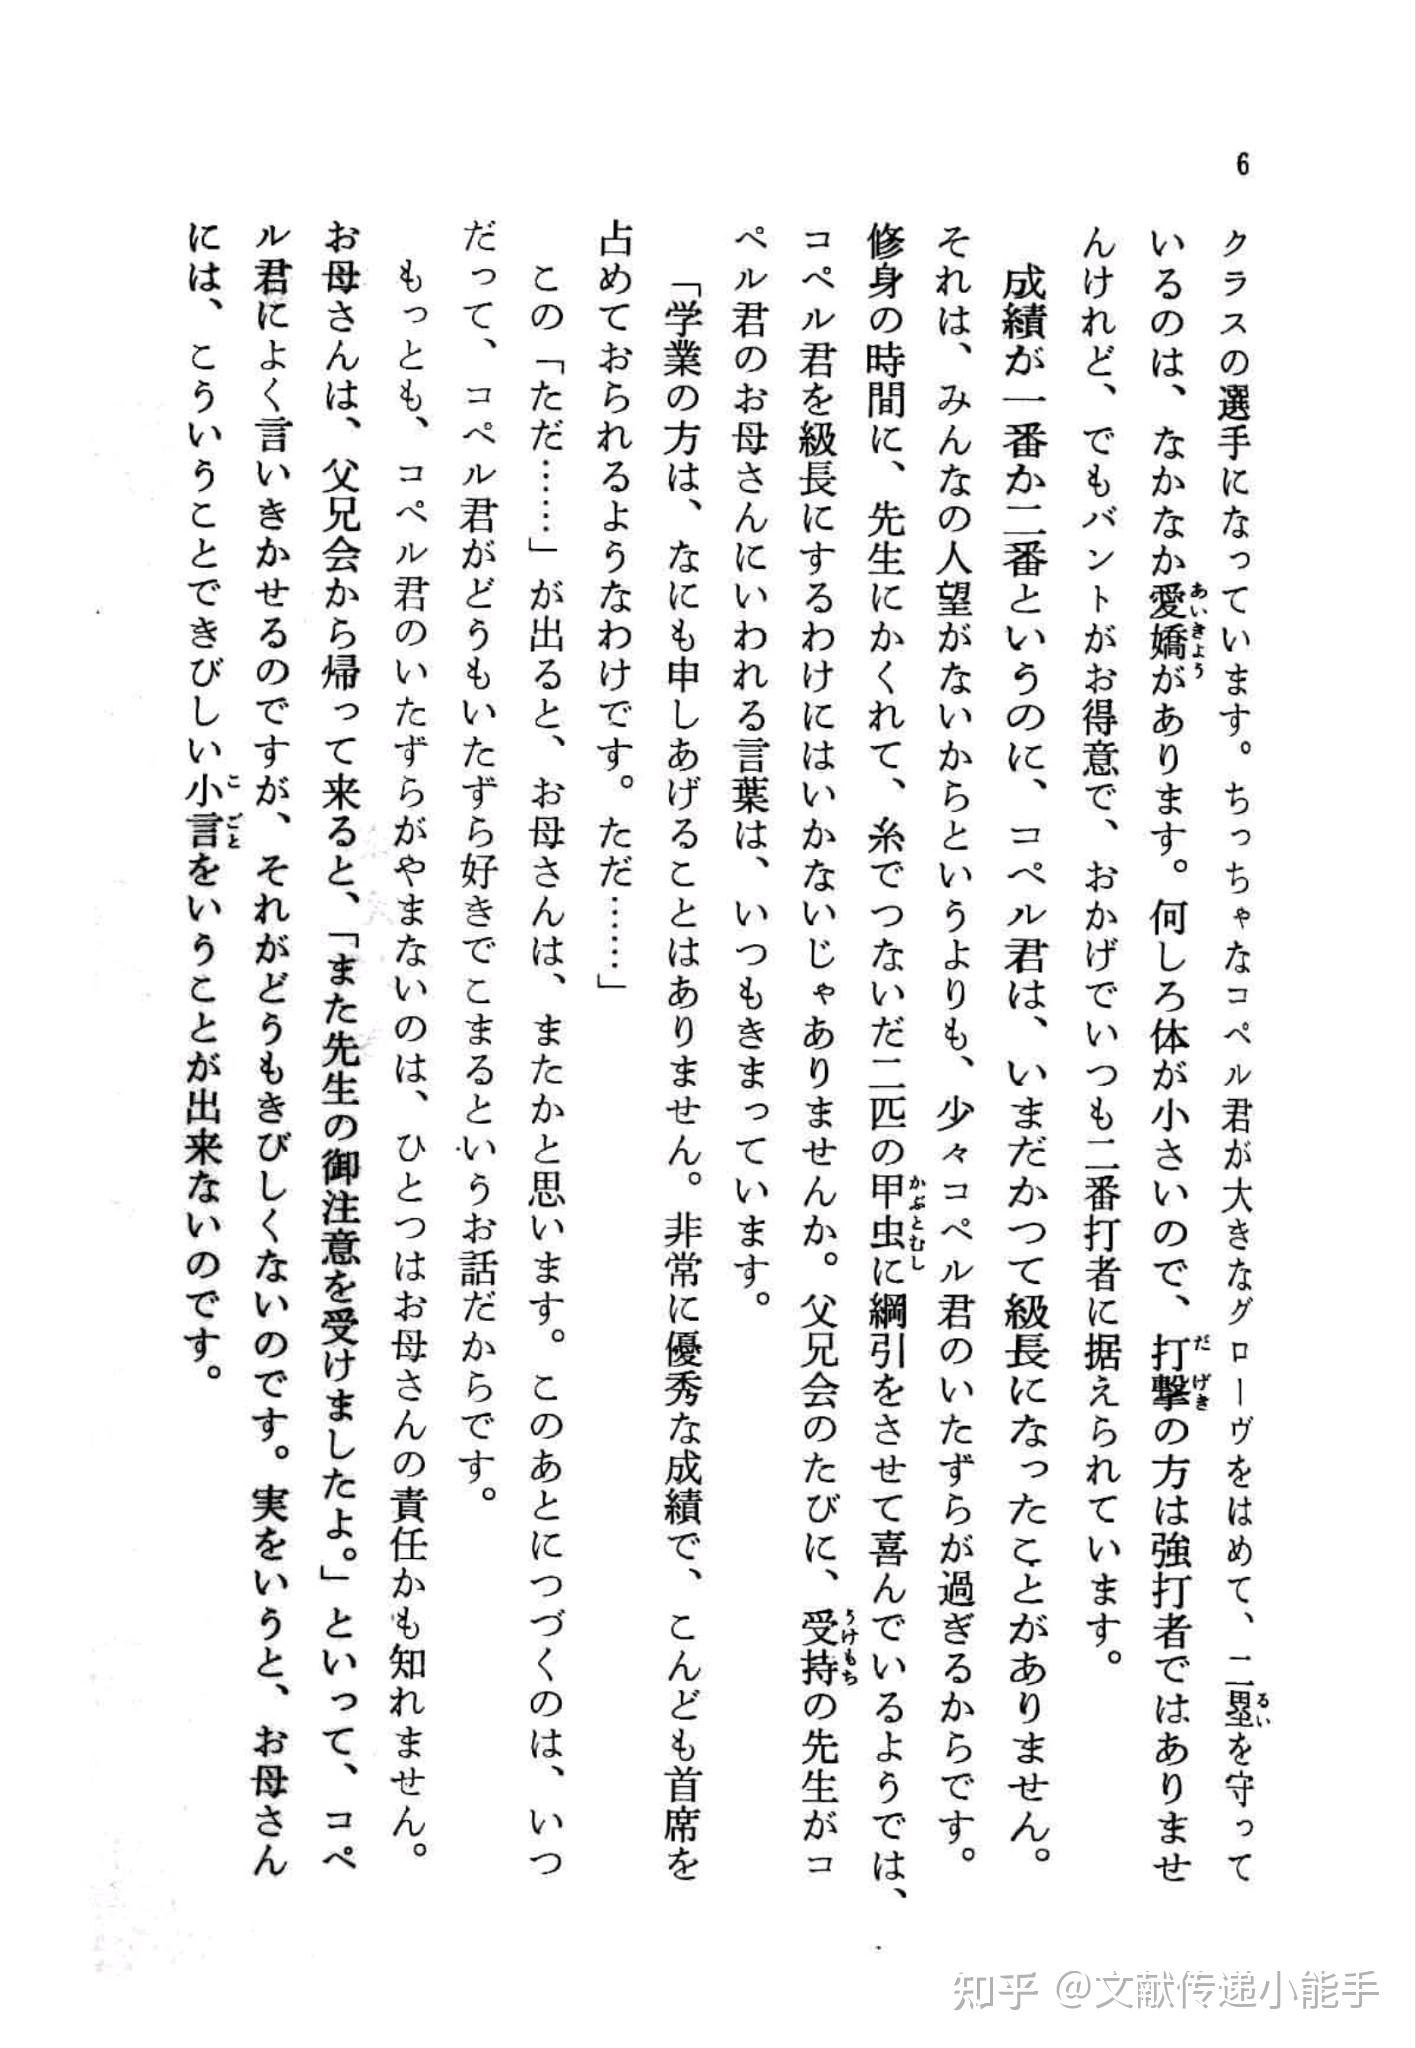 6
クラスの選手になっています。ちっちゃなコペル君が大きなグローヴをはめて、二塁を守って
いるのは、なかなか愛嬌があります。何しろ体が小さいので、打撃の方は強打者ではありませ
んけれど、でもバントがお得意で、おかげでいつも二番打者に据えられています。
成績が一番か二番というのに、コペル君は、いまだかつて級長になったことがありません。
それは、みんなの人望がないからというよりも、少々コペル君のいたずらが過ぎるからです。
修身の時間に、先生にかくれて、糸でつないだ二匹の甲虫に綱引をさせて喜んでいるようでは、
コペル君を級長にするわけにはいかないじゃありませんか。父兄会のたびに、受持の先生がコ
ペル君のお母さんにいわれる言葉は、いつもきまっています。
「学業の方は、なにも申しあげることはありません。非常に優秀な成績で、こんども首席を
占めておられるようなわけです。ただ……」
この「ただ……」が出ると、お母さんは、またかと思います。このあとにつづくのは、いつ
だって、コペル君がどうもいたずら好きでこまるというお話だからです。
もっとも、コペル君のいたずらがやまないのは、ひとつはお母さんの責任かも知れません。
お母さんは、父兄会から帰って来ると、「また先生の御注意を受けましたよ。」といって、コペ
ル君によく言いきかせるのですが、それがどうもきびしくないのです。実をいうと、お母さん
には、こういうことできびしい小言をいうことが出来ないのです。
知乎 @文献传递小能手